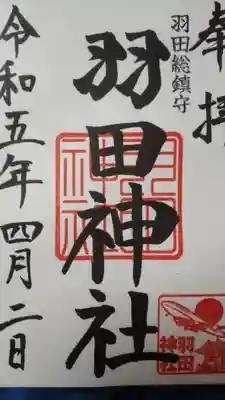 奉拝
羽田総鎮守
羽田神社
令和五年 四月 二日
羽田
神社